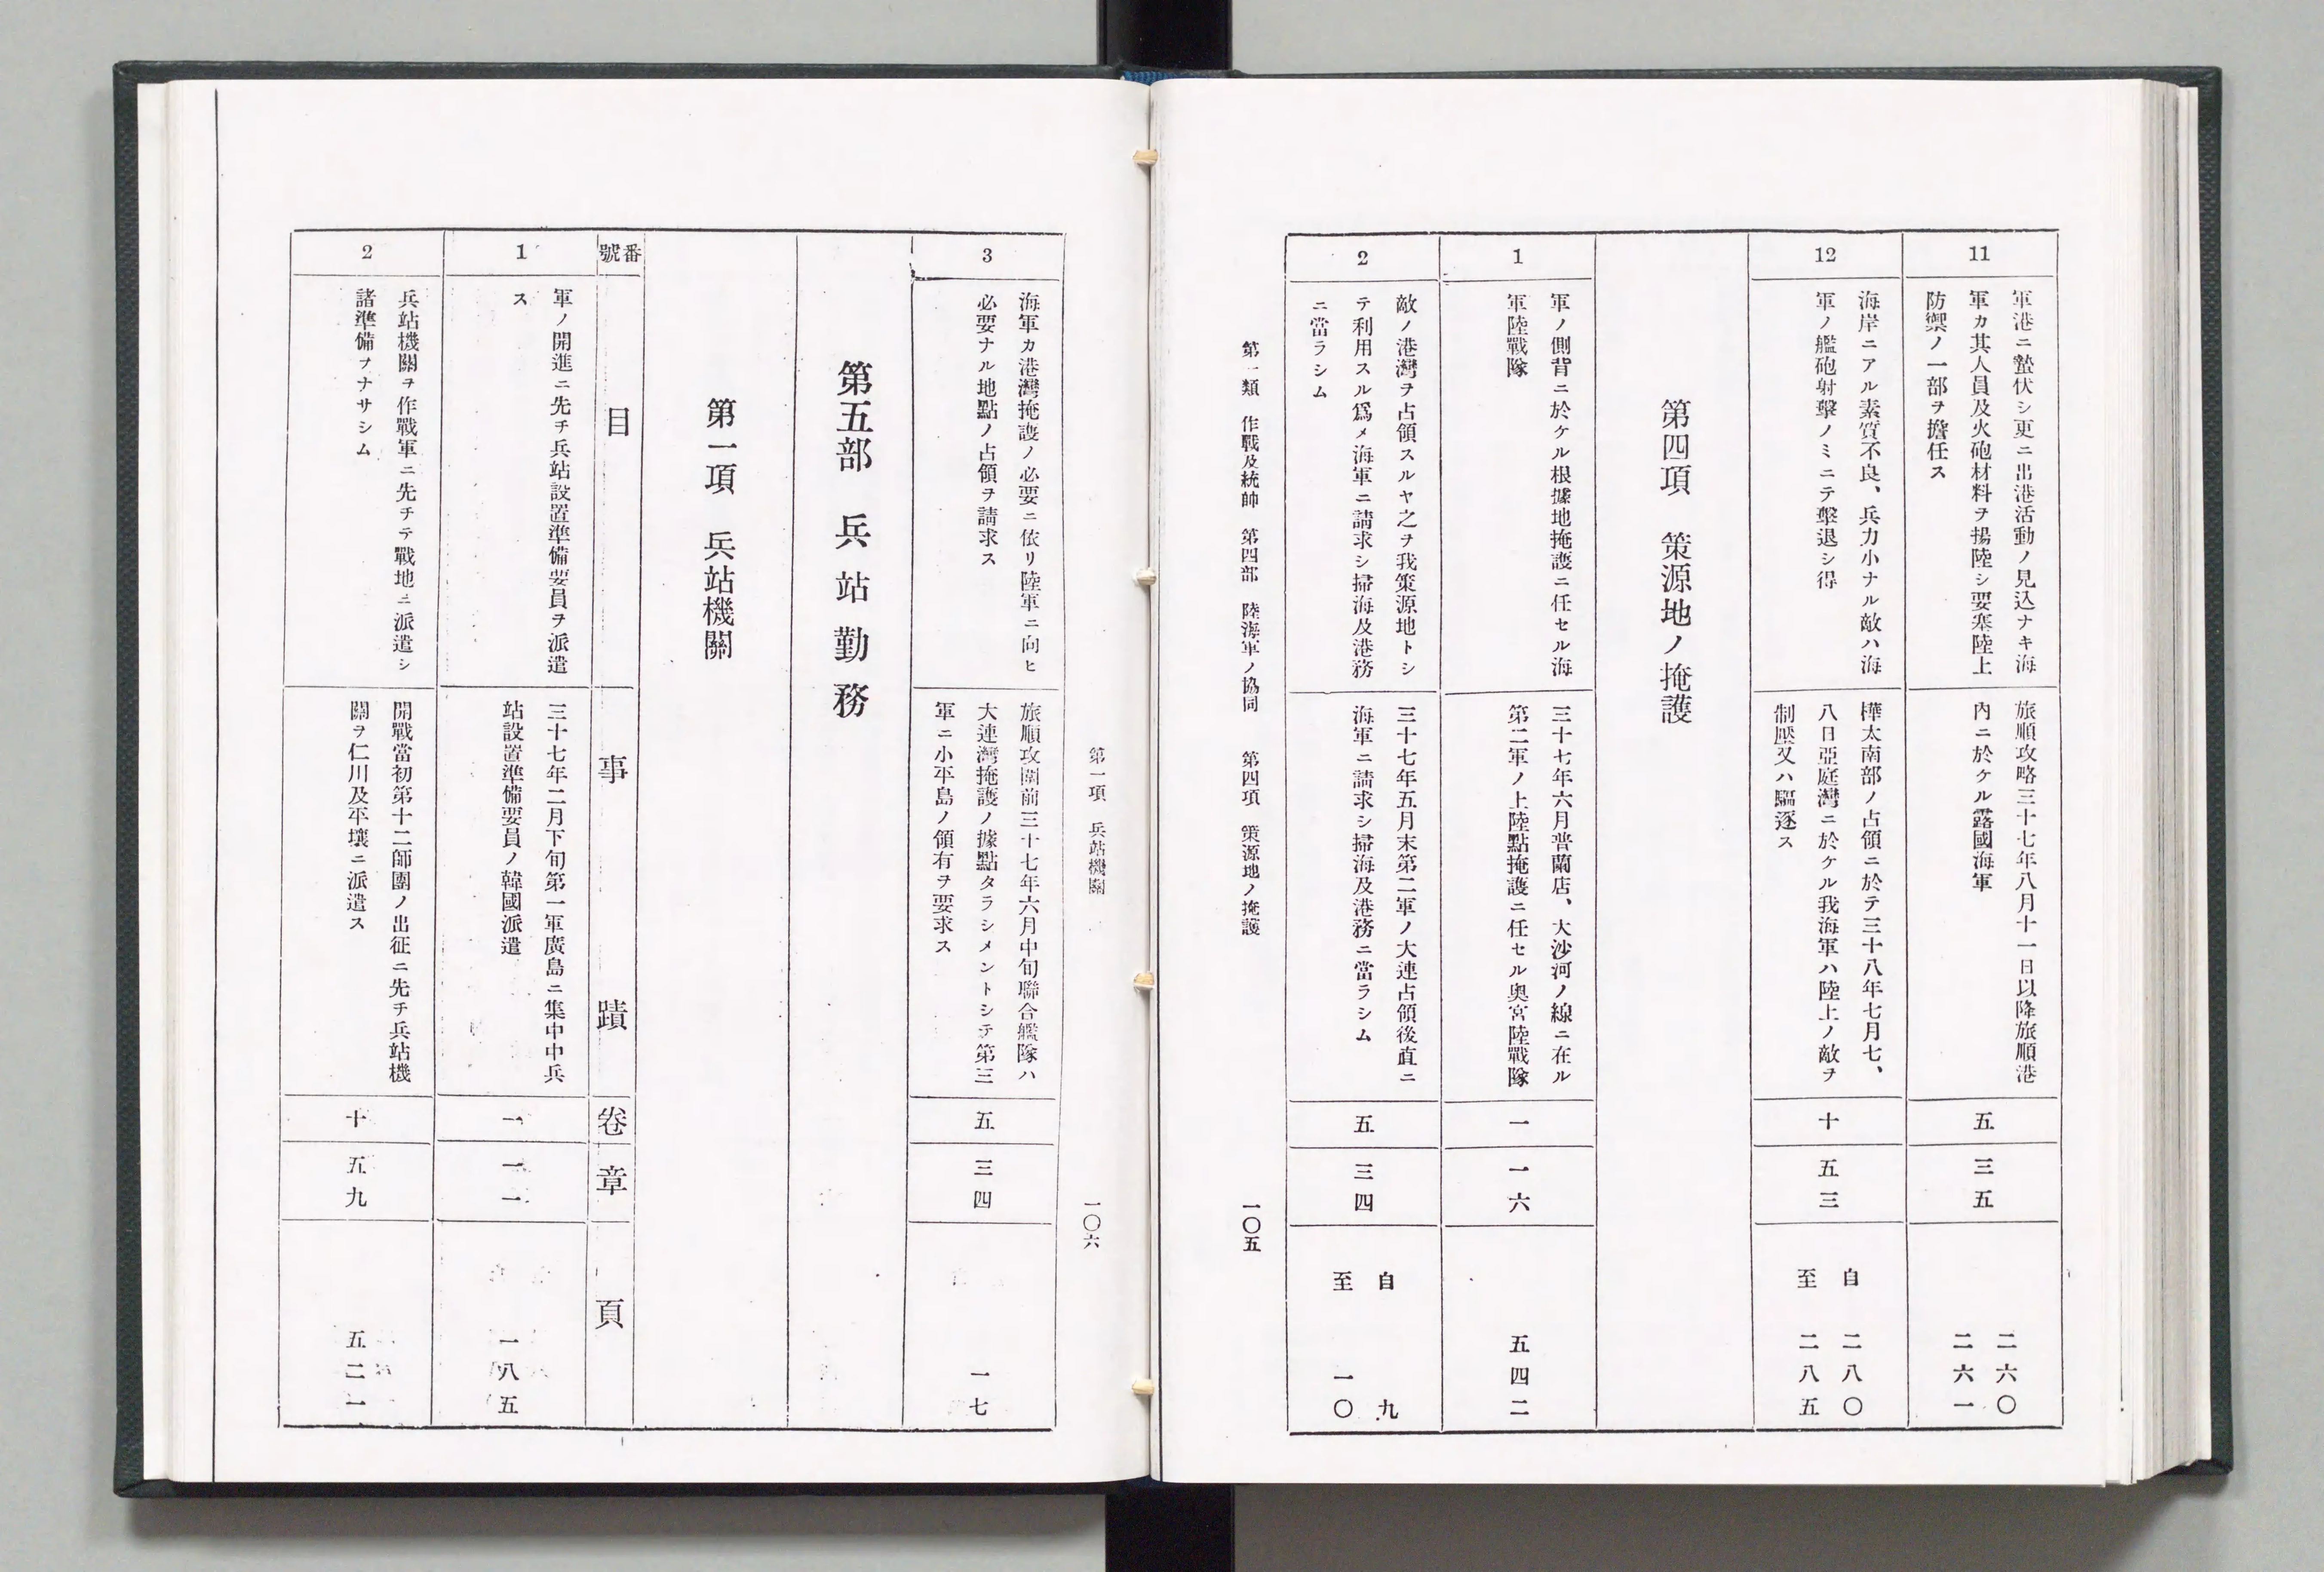 11
軍港ニ蟄伏シ更ニ出港活動ノ見込ナキ海
軍カ其人員及火砲材料ヲ揚陸シ要塞陸上
防禦ノ一部ヲ擔任ス
旅順攻略三十七年八月十一日以降旅順港
內ニ於ケル露國海軍
五
三五
二六〇
二六一
12
海岸ニアル素質不良、兵力小ナル敵ハ海
軍ノ艦砲射擊ノミニテ擊退シ得
樺太南部ノ占領ニ於テ三十八年七月七、
八日亞庭灣ニ於ケル我海軍ハ陸上ノ敵ヲ
制壓又ハ驅逐ス
十
五三
自 二八〇
至 二八五
第四項 策源地ノ掩護
1
軍ノ側背ニ於ケル根據地掩護ニ任セル海
軍陸戰隊
三十七年六月普蘭店、大沙河ノ線ニ在ル
第二軍ノ上陸點掩護ニ任セル奧宮陸戰隊
一
一六
五四二
2
敵ノ港灣ヲ占領スルヤ之ヲ我策源地トシ
テ利用スル爲メ海軍ニ請求シ掃海及港務
ニ當ラシム
三十七年五月末第二軍ノ大連占領後直ニ
海軍ニ請求シ掃海及港務ニ當ラシム
五
三四
自 九
至 一〇
第一類 作戰及統帥 第四部 陸海軍ノ協同 第四項 策源地ノ掩護
一〇五
第一項 兵站機關
一〇六
3
海軍カ港灣掩護ノ必要ニ依リ陸軍ニ向ヒ
必要ナル地點ノ占領ヲ請求ス
旅順攻圍前三十七年六月中旬聯合艦隊ハ
大連灣掩護ノ據點タラシメントシテ第三
軍ニ小平島ノ領有ヲ要求ス
五
三四
一七
第五部 兵站勤務
第一項 兵站機關
番號
目
事蹟
卷
章
頁
1
軍ノ開進ニ先チ兵站設置準備要員ヲ派遣
ス
三十七年二月下旬第一軍廣島ニ集中中兵
站設置準備要員ノ韓國派遣
一
一一
一八五
2
兵站機關ヲ作戰軍ニ先チテ戰地ニ派遣シ
諸準備ヲナサシム
開戰當初第十二師團ノ出征ニ先チ兵站機
關ヲ仁川及平壤ニ派遣ス
十
五九
五二一